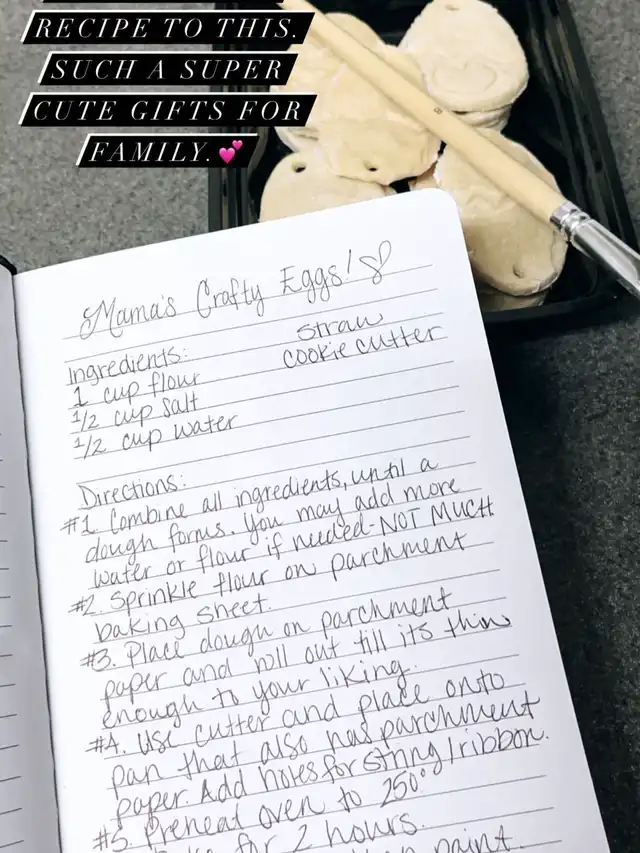 RECIPE TO THIS.
SUCH A SUPER
CUTE GIFTS FOR
FAMILY.💕
Mama's Crafty Eggs!
Ingredients:
1 cup flour
1/2 cup salt
1/2 cup water
straw
cookie cutter
Directions:
#1 Combine all ingredients, until a
dough forms. You may add more
water or flour if needed-NOT MUCH
#2. Sprinkle flour on parchment
baking sheet.
#3. Place dough on parchment
paper and roll out till its thin
enough to your liking.
#4. Use cutter and place onto
pan that also has parchment
paper. Add holes for string/ribbon.
#5. Preheat oven to 250°
for 2 hours.
paint.